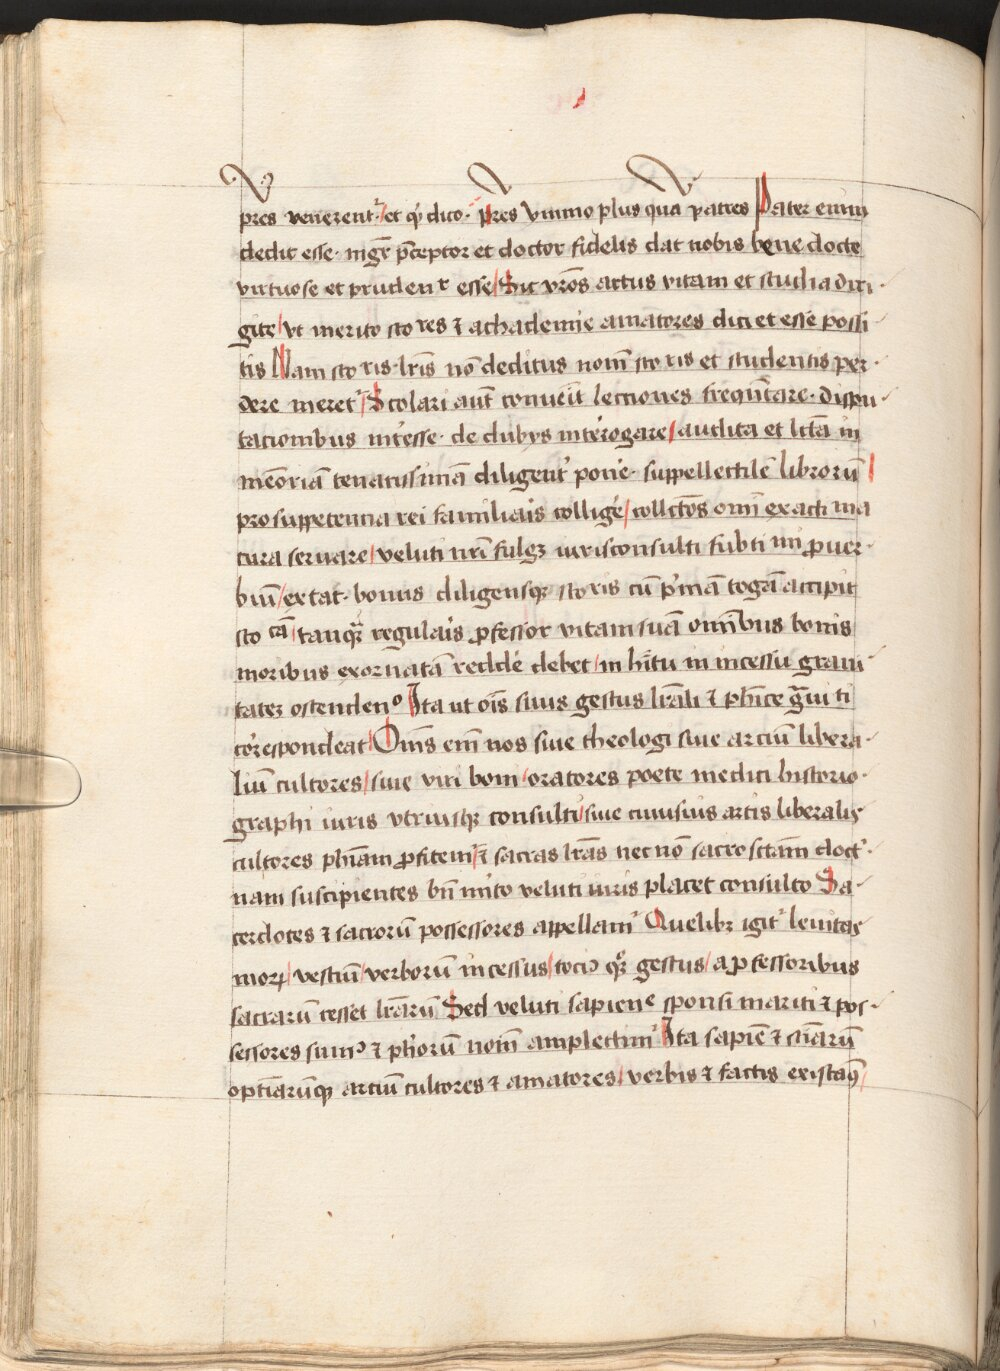 p̄res venerent᷑ / et qͥ dico · p̄res ymmo plus qua patres Pater enim
dedit esse · mgr̄ p̄ceptor et doctor fidelis dat nobis bene docte
virtuose et prudenʳ esse / Sic vr̄os actus vitam et studia diri-
gite / vt merito sco res ⁊ achademie amatores dici et esse possi-
tis Nam sco ris · lr̄is nō deditus nom̄ sco ris et studentis per-
dere meret᷑ / Scolari aut̄ conueīt lectiones freqn̄tare · dispu-
tacionibus intēsse · de dubys interogare / audita et lc̄ta in
mēoriā tenacissimā diligent᷑ poñe · suppellectilē librorū /
pro suppetencia rei familiaīs collige͛ / collc̄tos om̄i exacti ma
cura seruare / veluti nr̄i fulgꝫ iurisconsulti subti mi ꝓuer-
biū / extat · bonus diligensqꝫ sco ris cū pͥmā togā accipit
sco caᷓ / tanqᷓꝫ regulaīs ꝓfessor vitam suā omībus bonis
moribus exornatā redde͛ debet / in hītu in incessu graui-
tateꝫ ostendenᵒ Ita ut ois̄ suus gestus lr̄ali ⁊ phīce gᷓui ti
correspondeat / Om̄s em̄ nos siue theologi siue arciū libera-
liū cultores / siue viri boni / oratores poete medici historio-
graphi iuris vtriusqꝫ consulti / siue cuiusuis artis liberalis
cultores phīam ꝓfitem᷑ / sacras lr̄as necnō sacro sc̄tam doct͛-
nam suscipientes bn̄ mͥto veluti iuris placet consulto Sa-
cerdotes ⁊ sacrorū possessores appellam᷑ Quelibꝫ igit᷑ leuitas
moꝝ / vestiū / verborū incessus / tociꝰ qꝫ gestus / a ꝓfessoribus
sacrarū cesset lr̄arū Sed veluti sapienᵉ sponsi mariti ⁊ pos-
sessores sumꝰ ⁊ ph̄orū nom̄ amplectim᷑ Ita sapiē ⁊ sciarū
optīarūqꝫ arciū cultores ⁊ amatores / verbis ⁊ factis existaꝰ /